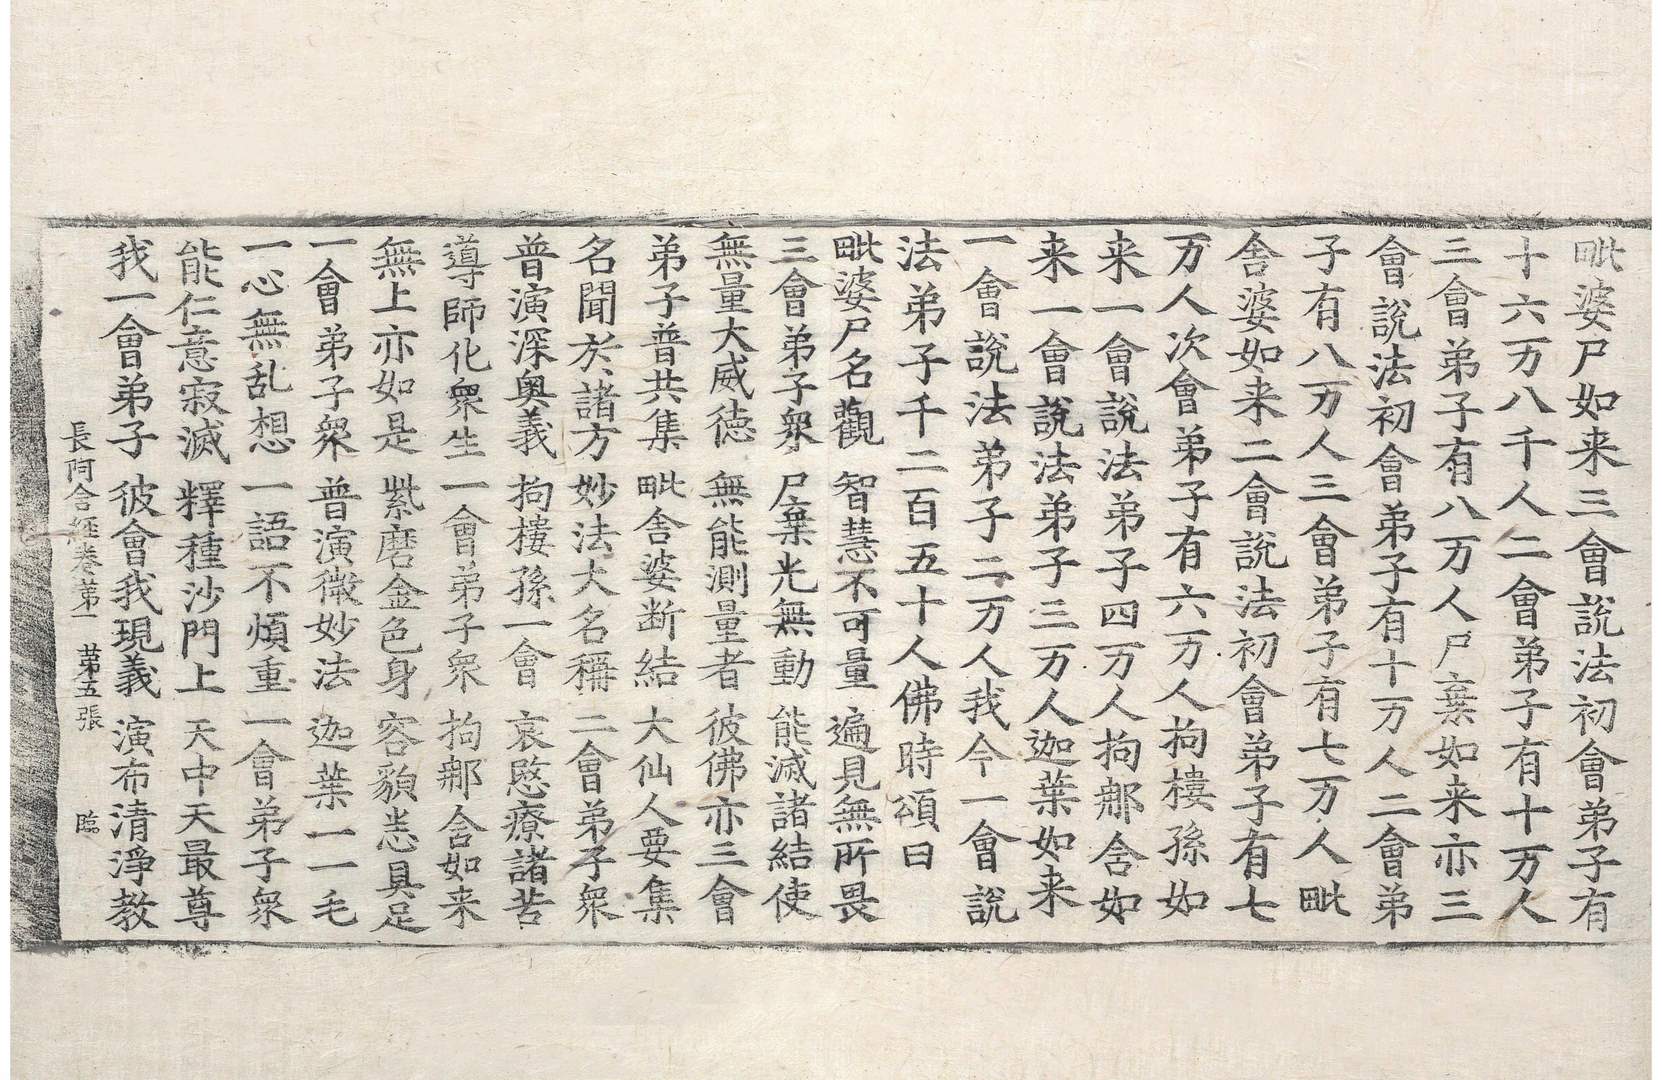 毗婆尸如来三會說法初會弟子有
十六万八千人二會弟子有十万人
三會弟子有八万人尸棄如来亦三
會說法初會弟子有十万人二會弟
子有八万人三會弟子有七万人毗
舍婆如来二會說法初會弟子有七
万人次會弟子有六万人拘樓孫如
来一會說法弟子四万人拘那舍如
来一會說法弟子三万人迦葉如来
一會說法弟子二万人我今一會說
法弟子千二百五十人佛時頌曰
毗婆尸名觀 智慧不可量 遍見無所畏
三會弟子衆 尸棄光無動 能滅諸結使
無量大威德 無能測量者 彼佛亦三會
弟子普共集 毗舍婆断結 大仙人要集
名聞於諸方 妙法大名稱 二會弟子衆
普演深奧義 拘樓孫一會 哀愍療諸苦
導師化衆生 一會弟子衆 拘那舍如来
無上亦如是 紫磨金色身 容貌悉具足
一會弟子衆 普演微妙法 迦葉一一毛
一心無乱想 一語不煩重 一會弟子衆
能仁意寂滅 釋種沙門上 天中天最尊
我一會弟子 彼會我現義 演布清淨教
長阿含經卷第一 第五張 臨